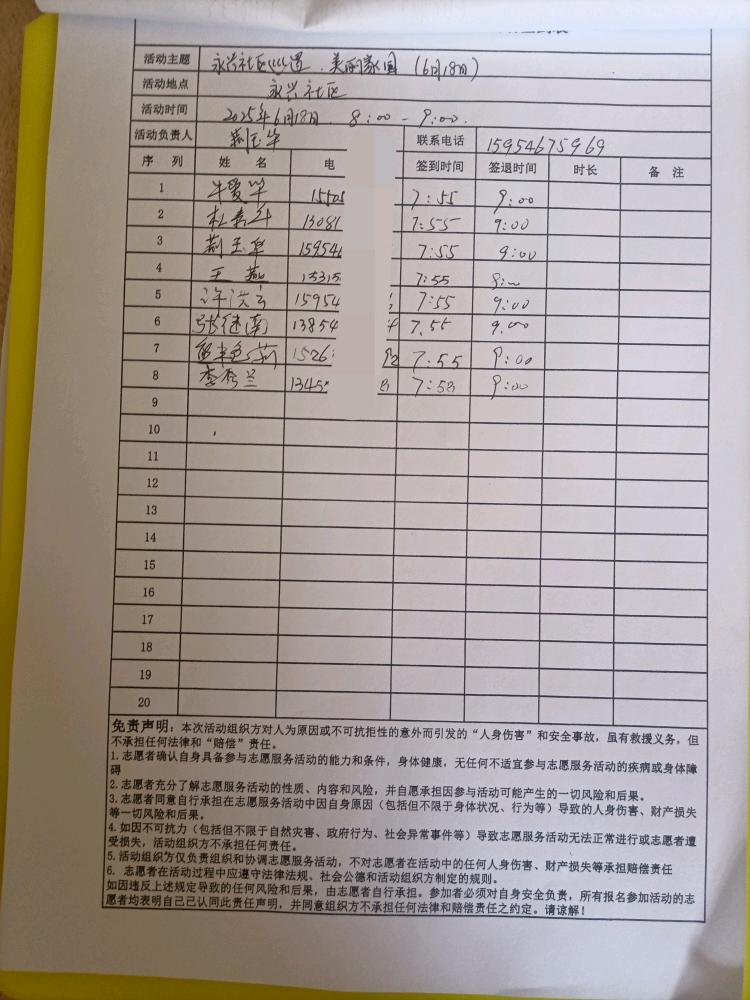 活动主题 永兴社区巡逻、美丽家园（6月18日）
活动地点 永兴社区
活动时间 2025年6月18日. 8:00-9:00.
活动负责人 荆玉华 联系电话 15954675969
序 列 姓 名 电 签到时间 签退时间 时长 备 注
1 牛爱华 15505 7:55 9:00
2 杜秀华 13081 7:55 9:00
3 荆玉华 15954 7:55 9:00
4 王燕 15315 7:55 9:00
5 许洪 15954 7:55 9:00
6 张继南 13854 7.55 9.00
7 1526 7:55 9:00
8 李秀兰 1345 7:58 9:00
9
10
11
12
13
14
15
16
17
18
19
20
免责声明：本次活动组织方对人为原因或不可抗拒性的意外而引发的“人身伤害”和安全事故，虽有救援义务，但
不承担任何法律和“赔偿”责任。
1.志愿者确认自身具备参与志愿服务活动的能力和条件，身体健康，无任何不适宜参与志愿服务活动的疾病或身体障
碍
2.志愿者充分了解志愿服务活动的性质、内容和风险，并自愿承担因参与活动可能产生的一切风险和后果。
3.志愿者同意自行承担在志愿服务活动中因自身原因（包括但不限于身体状况、行为等）导致的人身伤害、财产损失
等一切风险和后果。
4.如因不可抗力（包括但不限于自然灾害、政府行为、社会异常事件等）导致志愿服务活动无法正常进行或志愿者遭
受损失，活动组织方不承担任何责任。
5.活动组织方仅负责组织和协调志愿服务活动，不对志愿者在活动中的任何人身伤害、财产损失等承担赔偿责任
6. 志愿者在活动过程中应遵守法律法规、社会公德和活动组织方制定的规则。
如因违反上述规定导致的任何风险和后果，由志愿者自行承担。参加者必须对自身安全负责，所有报名参加活动的志
愿者均表明自己已认同此责任声明，并同意组织方不承担任何法律和赔偿责任之约定。请谅解！